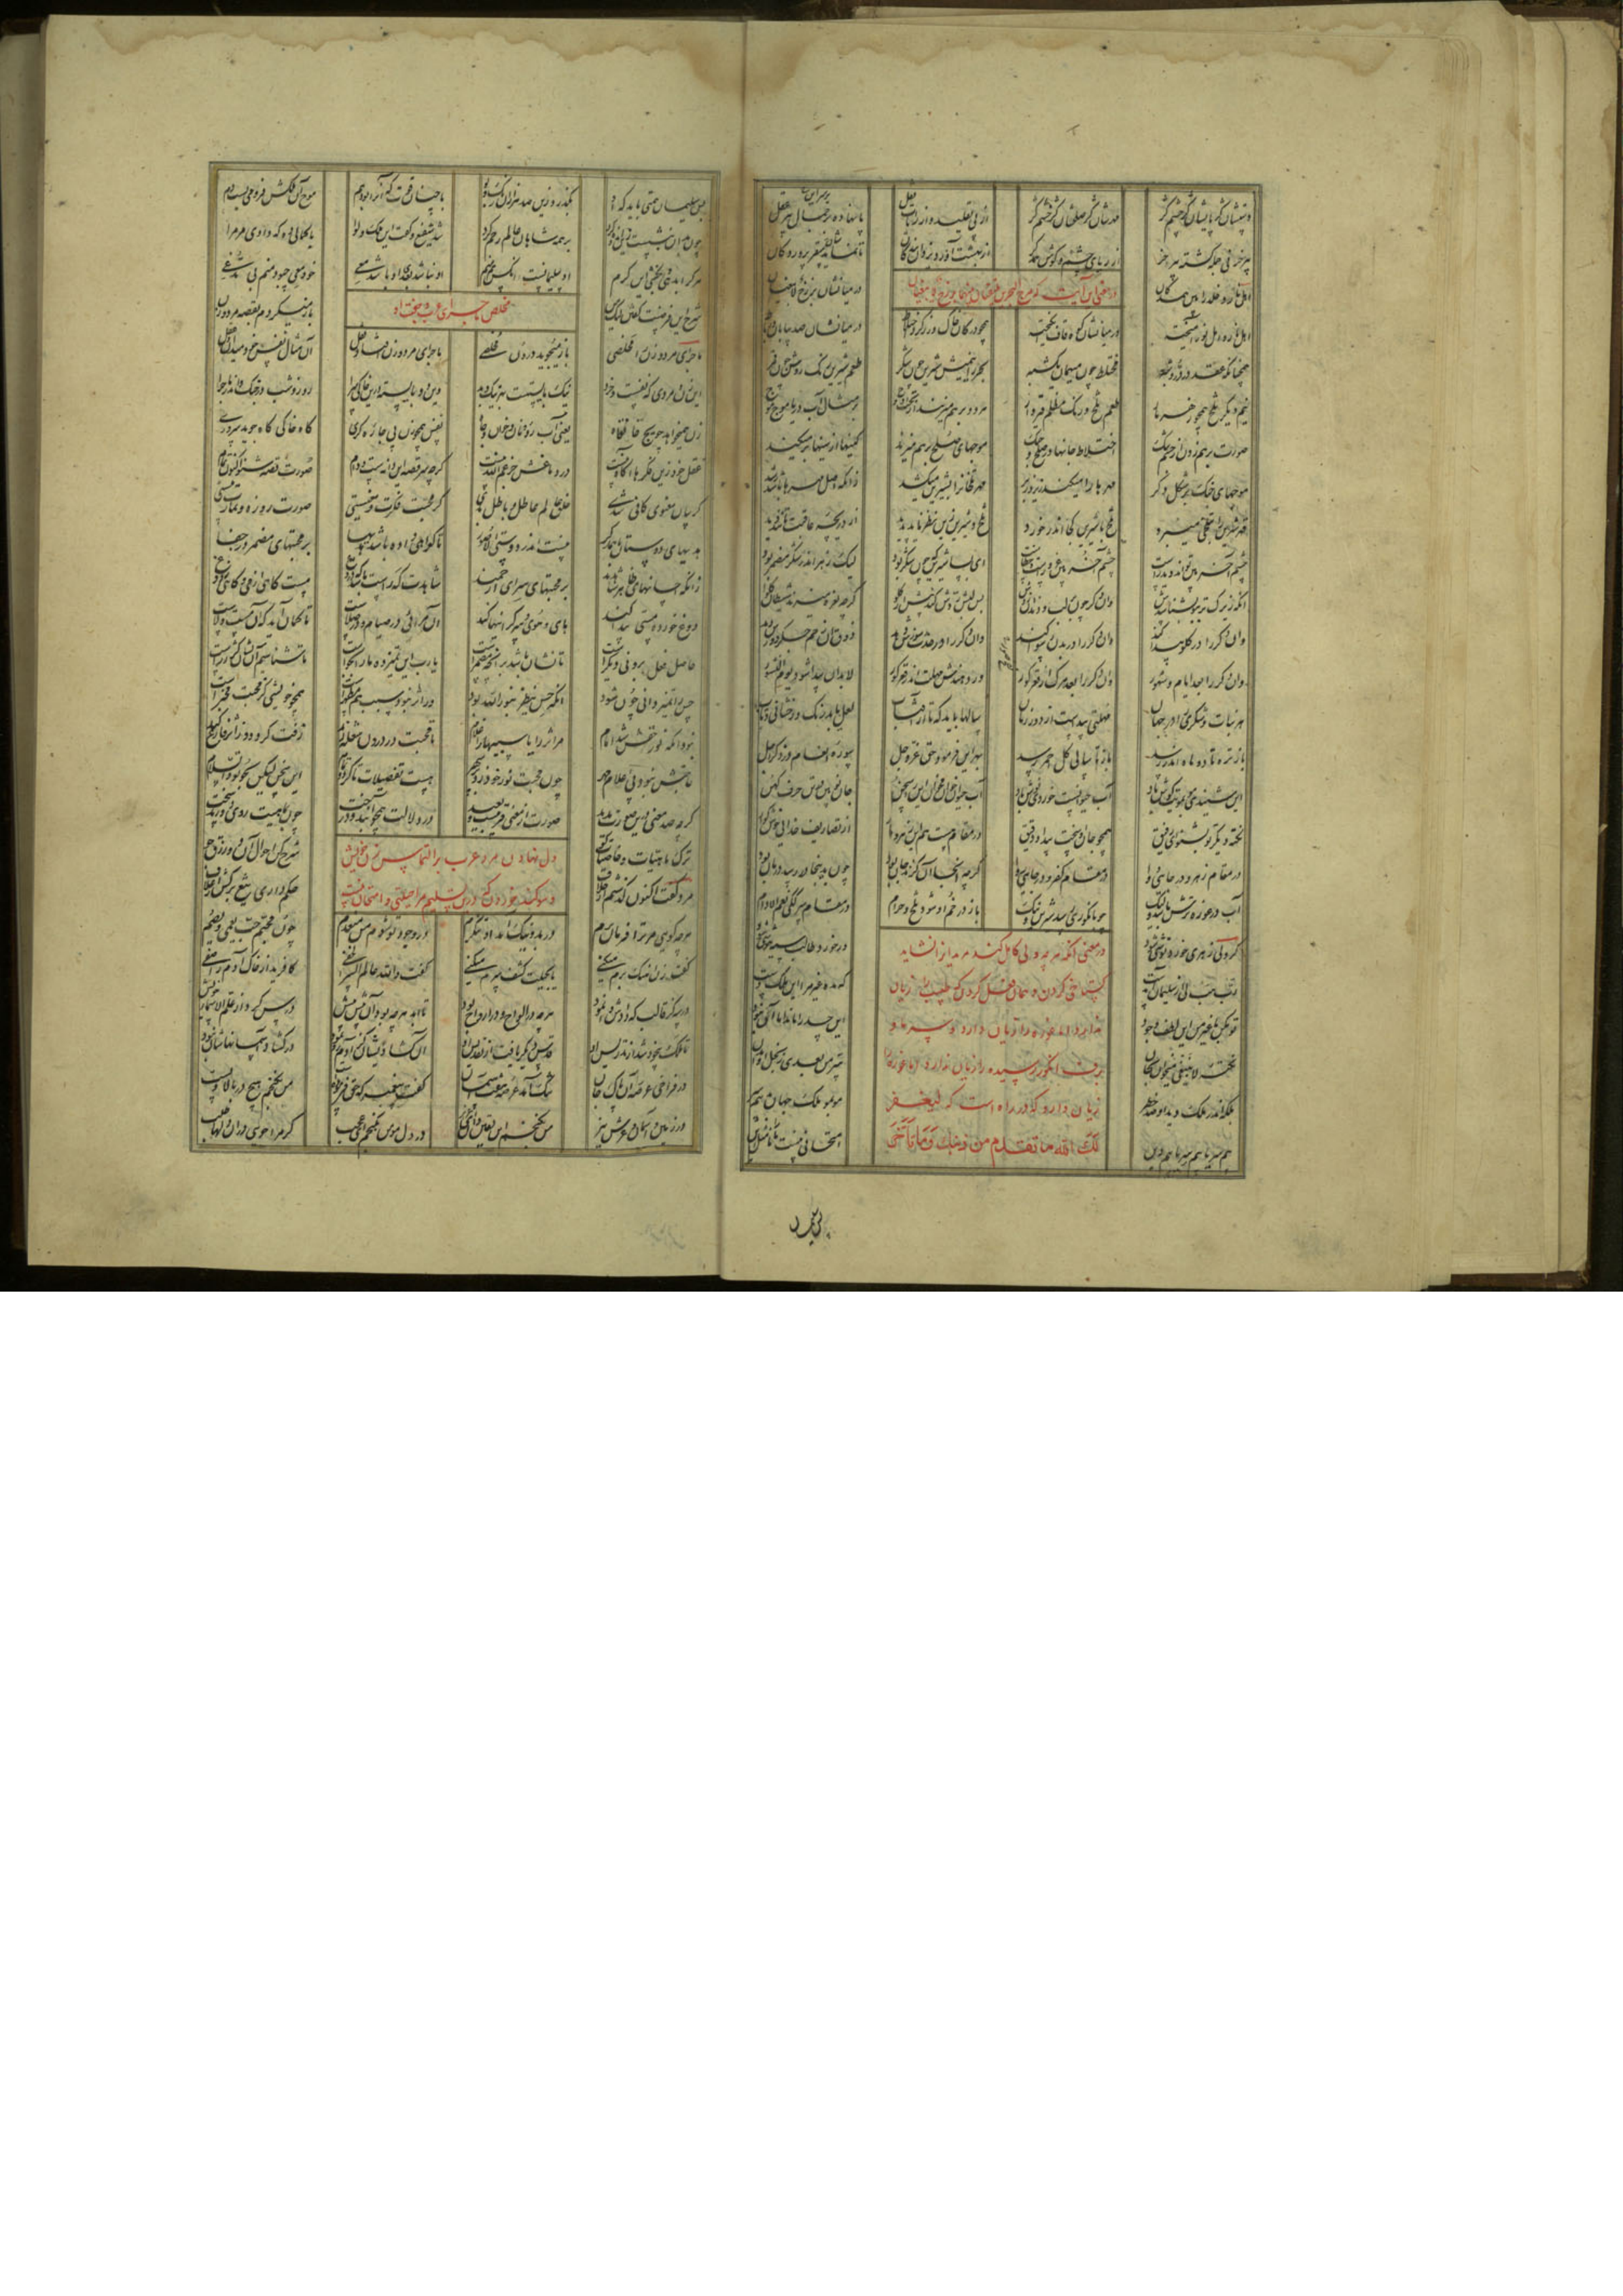 دستشان کژ پایشان کژ چشم کژ مهرشان کژ صلحشان کژ خشم کژ از پی تقلید و از رایات نقل پا نهاده بر جمال پیر عقل
پیر خر نی جمله گشته پیر خر از ریای چشم و گوش همدگر از بهشت آورد یزدان بندگان تا نمایدشان سقر پروردگان
در معنی آن آیت که مرج البحرین یلتقیان بینهما برزخ لا یبغیان
اهل نار و خلد را بین همدکان در میانشان برزخ لا یبغیان
اهل نار و اهل نور آمیخته در میانشان کوه قاف انگیخته همچو در کان خاک و زر کرد اختلاط در میانشان صد بیابان و رباط
همچنانکه عقد در در و شبه مختلط چون میهمان یک شبه بحر را نیمیش شیرین چون شکر طعم شیرین رنگ روشن چون قمر
نیم دیگر تلخ همچو زهر مار طعم تلخ و رنگ مظلم قیروار هر دو بر هم میزنند از تحت و اوج بر مثال آب دریا موج موج
صورت بر هم زدن از جسم تنگ اختلاط جانها در صلح و جنگ موجهای صلح بر هم میزند کینها از سینها بر میکند
موجهای جنگ بر شکل دگر مهرها را میکند زیر و زبر مهر تلخان را بشیرین میکشد زانکه اصل مهرها باشد رشد
قهر شیرین را بتلخی میبرد تلخ با شیرین کجا اندر خورد تلخ و شیرین زین نظر ناید پدید از دریچه عاقبت تانند دید
چشم آخر بین تواند دید راست چشم آخر بین غرورست و خطاست ای بسا شیرین که چون شکر بود لیک زهر اندر شکر مضمر بود
آنکه زیرک تر ببو بشناسدش وان دگر چون بر لب و دندان زدش پس لبش ردش کند پیش از گلو گرچه نعره میزند شیطان کلوا
وان دگر را در گلو پیدا کند وان دگر را در بدن رسوا کند وان دگر را در حدث سوزش دهد
وان دگر را بعد ایام و شهور وان دگر را بعد مرگ از قعر گور ور دهندش مهلت اندر قعر گور لابد آن پیدا شود یوم النشور
هر نبات و شکری را در جهان مهلتی پیداست از دور زمان سالها باید که تا از آفتاب لعل یابد رنگ و رخشانی و تاب
باز تره تا دو ماه اندر رسد باز تا سالی گل احمر رسد بهر این فرمود حق عز و جل سوره انعام در ذکر اجل
این شنیدی مو بمویت گوش باد آب حیوانست خوردی نوش باد آب حیوان خوان مخوان این را سخن جان نو بین در تن حرف کهن
نکته دیگر تو بشنو ای رفیق همچو جان او سخت پیدا و دقیق در مقامی هست هم این زهر مار از تصاریف خدایی خوش گوار
در مقامی زهر و در جایی دوا در مقامی کفر و در جایی روا گرچه آنجا آن گزند جان بود چون بدینجا در رسد درمان بود
آب در غوره ترش باشد ولیک چون بانگوری رسد شیرین و نیک باز در خم او شود تلخ و حرام در مقام سرکگی نعم الادام
در معنی آنکه هر چه ولی کامل کند مرید را نشاید
گستاخی کردن و همان فعل کردن که طبیب را زیان
ندارد اما غوره را زیان دارد و سرما و
برف انگور رسیده را زیان ندارد اما غوره را
زیان دارد که در راه است که لیغفر
لک الله ما تقدم من ذنبک و ما تأخر
گر ولی زهری خورد نوشی شود ور خورد طالب سیه هوشی شود
رب هب لی از سلیمان آمدست که مده غیر مرا این ملک و دست
تو مکن با غیر من این لطف و جود این حسد را ماند اما آن نبود
نکته لا ینبغی میخوان بجان سر من بعدی ز بخل او مدان
بلکه اندر ملک دید او صد خطر مو بمو ملک جهان بد بیم سر
بیم سر با بیم سر با بیم دین امتحانی نیست ما را مثل این
پس سلیمان
پس سلیمان همتی باید که او بگذرد زین صد هزاران رنگ و بو با چنان قوت که آنرا بود هم موج آن ملکش فرو می بست دم
چون برو بنشست زین اندوه گرد بر همه شاهان عالم رحم کرد شد شفیع و گفت این ملک و لوا با کمالی ده که دادی مر مرا
هر کرا بدهی و بخشی این کرم او سلیمانست وانکس هم منم او نباشد بعدی او باشد معی خود معی چبود منم بی مدعی
مخلص ماجرای عرب و جفت او
شرح این فرضست گفتن لیک من باز میگردم بقصه مرد و زن
ماجرای مرد و زن را مخلصی باز میجوید درون مخلصی ماجرای مرد و زن افتاد نقل آن مثال نفس خود میدان و عقل
این زن و مردی که نفست و خرد نیک بایستست بهر نیک و بد وین دو بایسته درین خاکی سرا روز و شب در جنگ و اندر ماجرا
زن همیخواهد حویج خانقاه یعنی آب رو و نان و خوان و جاه نفس همچون زن پی چاره گری گاه خاکی گاه جوید سروری
عقل خود زین فکرها آگاه نیست در دماغش جز غم الله نیست گرچه سر قصه این دانه ست و دام صورت قصه شنو اکنون تمام
گر بیان معنوی کافی شدی خلق عالم عاطل و باطل بدی گر محبت فکرت و معنیستی صورت روزه و نمازت نیستی
هدیهای دوستان با همدگر نیست اندر دوستی الا صور تا گواهی داده باشد هدیها بر محبتهای مضمر در خفا
زانکه احسانهای ظاهر شاهدند بر محبتهای سر ای ارجمند شاهدت گه راست باشد گه دروغ مست گاهی از می و گاهی ز دوغ
دوغ خورده مستی پیدا کند های و هوی و سر گرانیها کند آن مرائی در صیام و در صلاست تا گمان آید که او مست ولاست
حاصل افعال برونی دیگرست تا نشان باشد بر آنچه مضمرست یا رب این تمییز ده ما را بخواست تا شناسیم آن نشان کژ ز راست
حس را تمییز دانی چون شود آنکه حس ینظر بنور الله بود ور اثر نبود سبب هم مظهرست همچو خویشی کز محبت مخبرست
نبود آنکه نور حقش شد امام مر اثر را یا سببها را غلام تا محبت در درون شعله زند زفت گردد وز اثر فارغ کند
حاجتش نبود پی اعلام مهر چون محبت نور خود زد بر سپهر هست تفصیلات تا گردد تمام این سخن لیکن بجو تو والسلام
گرچه شد معنی درین صورت پدید صورت از معنی قریبست و بعید در دلالت همچو آبند و درخت چون بماهیت روی دورند سخت
دل نهادن مرد عرب بر التماس زن خویش
و سوگند خوردن که درین تسلیم مرا حیلتی و امتحان نیست
ترک ماهیات و خاصیات گو شرح کن احوال آن دو رزق جو
مرد گفت اکنون گذشتم از خلاف حکم داری تیغ برکش از غلاف
هر چه گویی مر ترا فرمان برم در بد و نیک آمد او ننگرم در وجود تو شوم من منعدم چون محبم حب یعمی و یصم
گفت زن آهنگ برم میکنی یا بحیلت کشف سرم میکنی گفت والله عالم السر الخفی کافرید از خاک آدم را صفی
در سه گز قالب که دادش وا نمود هر چه در الواح و در ارواح بود تا ابد هر چه بود او پیش پیش درس کرد از علم الاسماء خویش
تا ملک بیخود شد از تدریس او قدس دیگر یافت از تقدیس او آن گشادیشان کز آدم رو نمود در گشاد آسمانهاشان نبود
در فراخی عرصه آن پاک جان تنگ آمد عرصه هفت آسمان گفت پیغمبر که حق فرموده است من نگنجم هیچ در بالا و پست
در زمین و آسمان و عرش نیز من نگنجم این یقین دان ای عزیز در دل مؤمن بگنجم ای عجب گر مرا جویی در آن دلها طلب